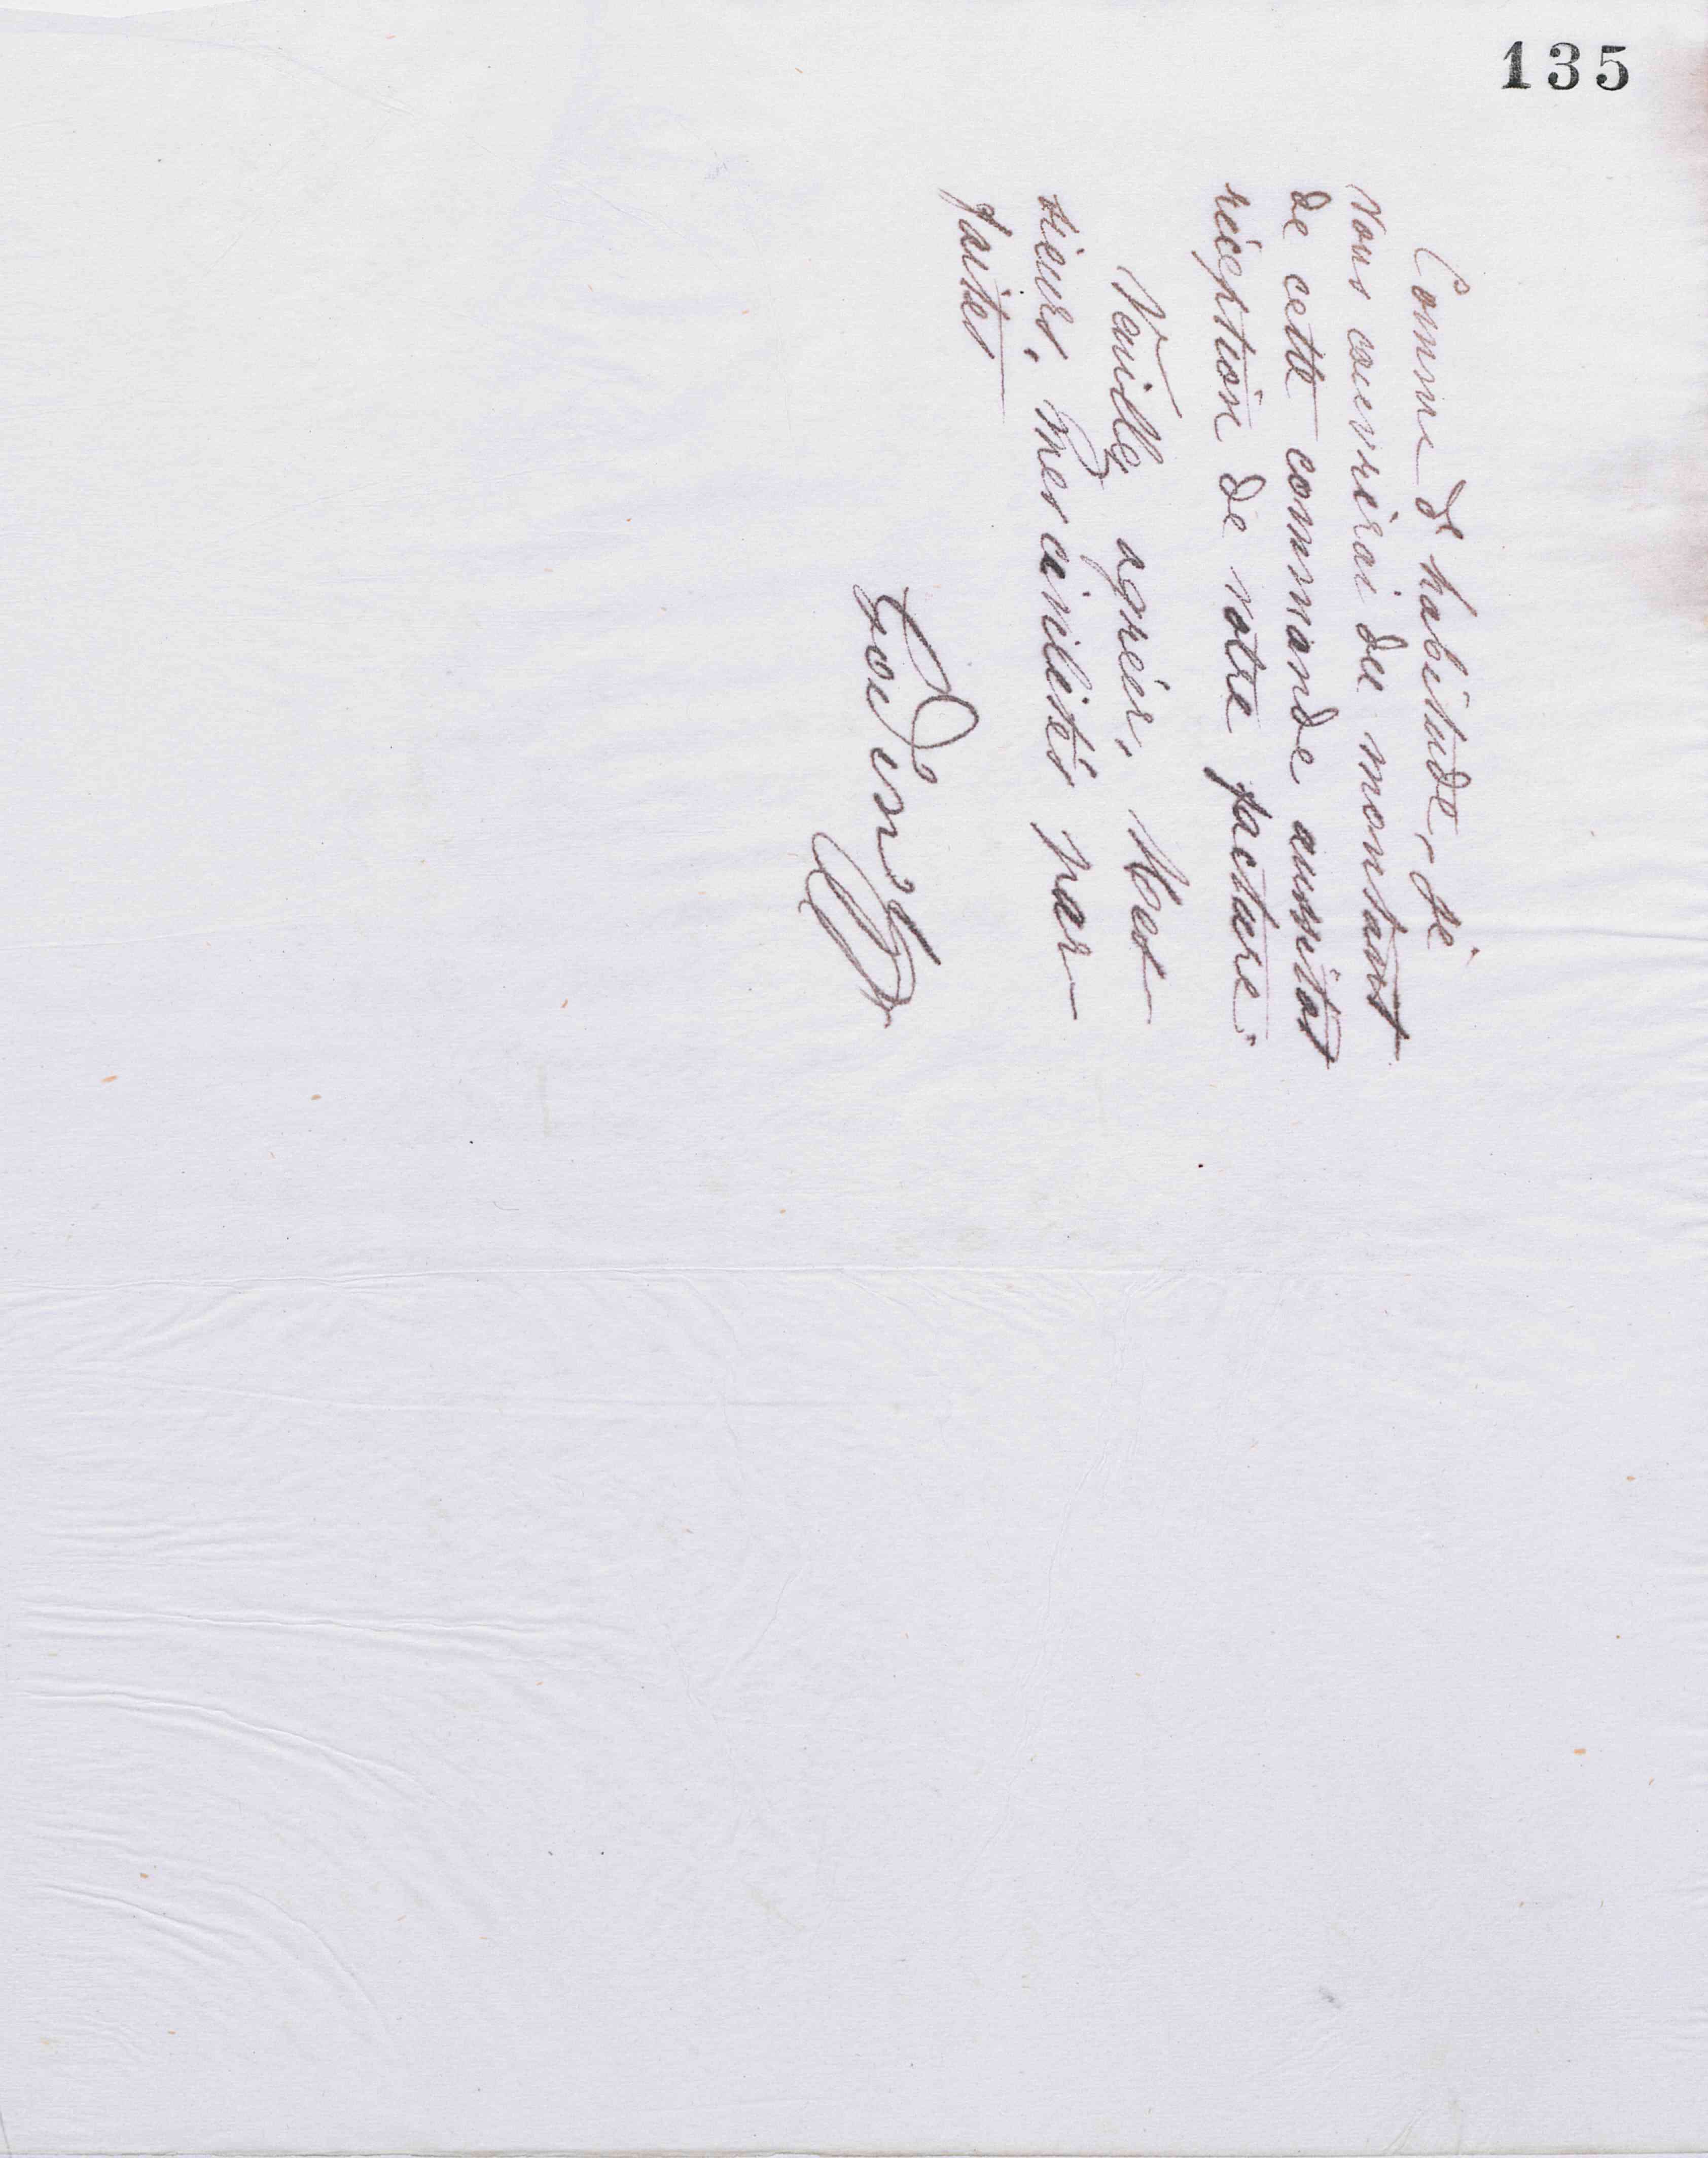 135
Comme d'habitude, je
vous couvrirai du montant
de cette commande aussitôt
réception de votre facture.
Veuillez agréer, Mes
sieurs, mes civilités par
faites
Godin